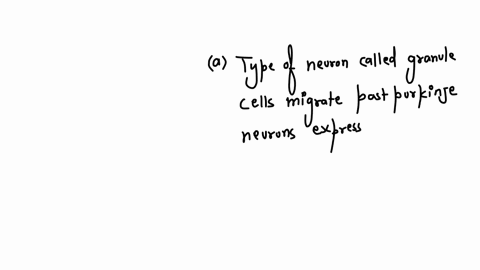 (a) Type of neuron called granule
cells migrate past purkinje
neurons express